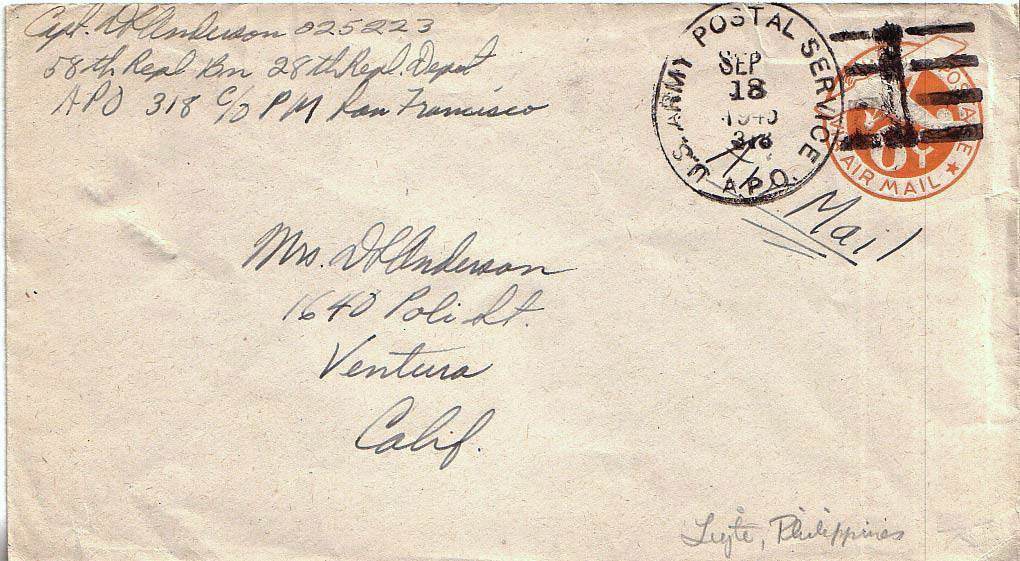 Capt. D L Anderson 025223
58th Repl Bn 28th Repl. Depot
APO 318 c/o PM San Francisco
U.S. ARMY POSTAL SERVICE
SEP
18
1945
318
A.P.O.
POSTAGE
6¢
AIR MAIL
Air Mail
Mrs. D L Anderson
1640 Poli St.
Ventura
Calif.
Leyte, Philippines